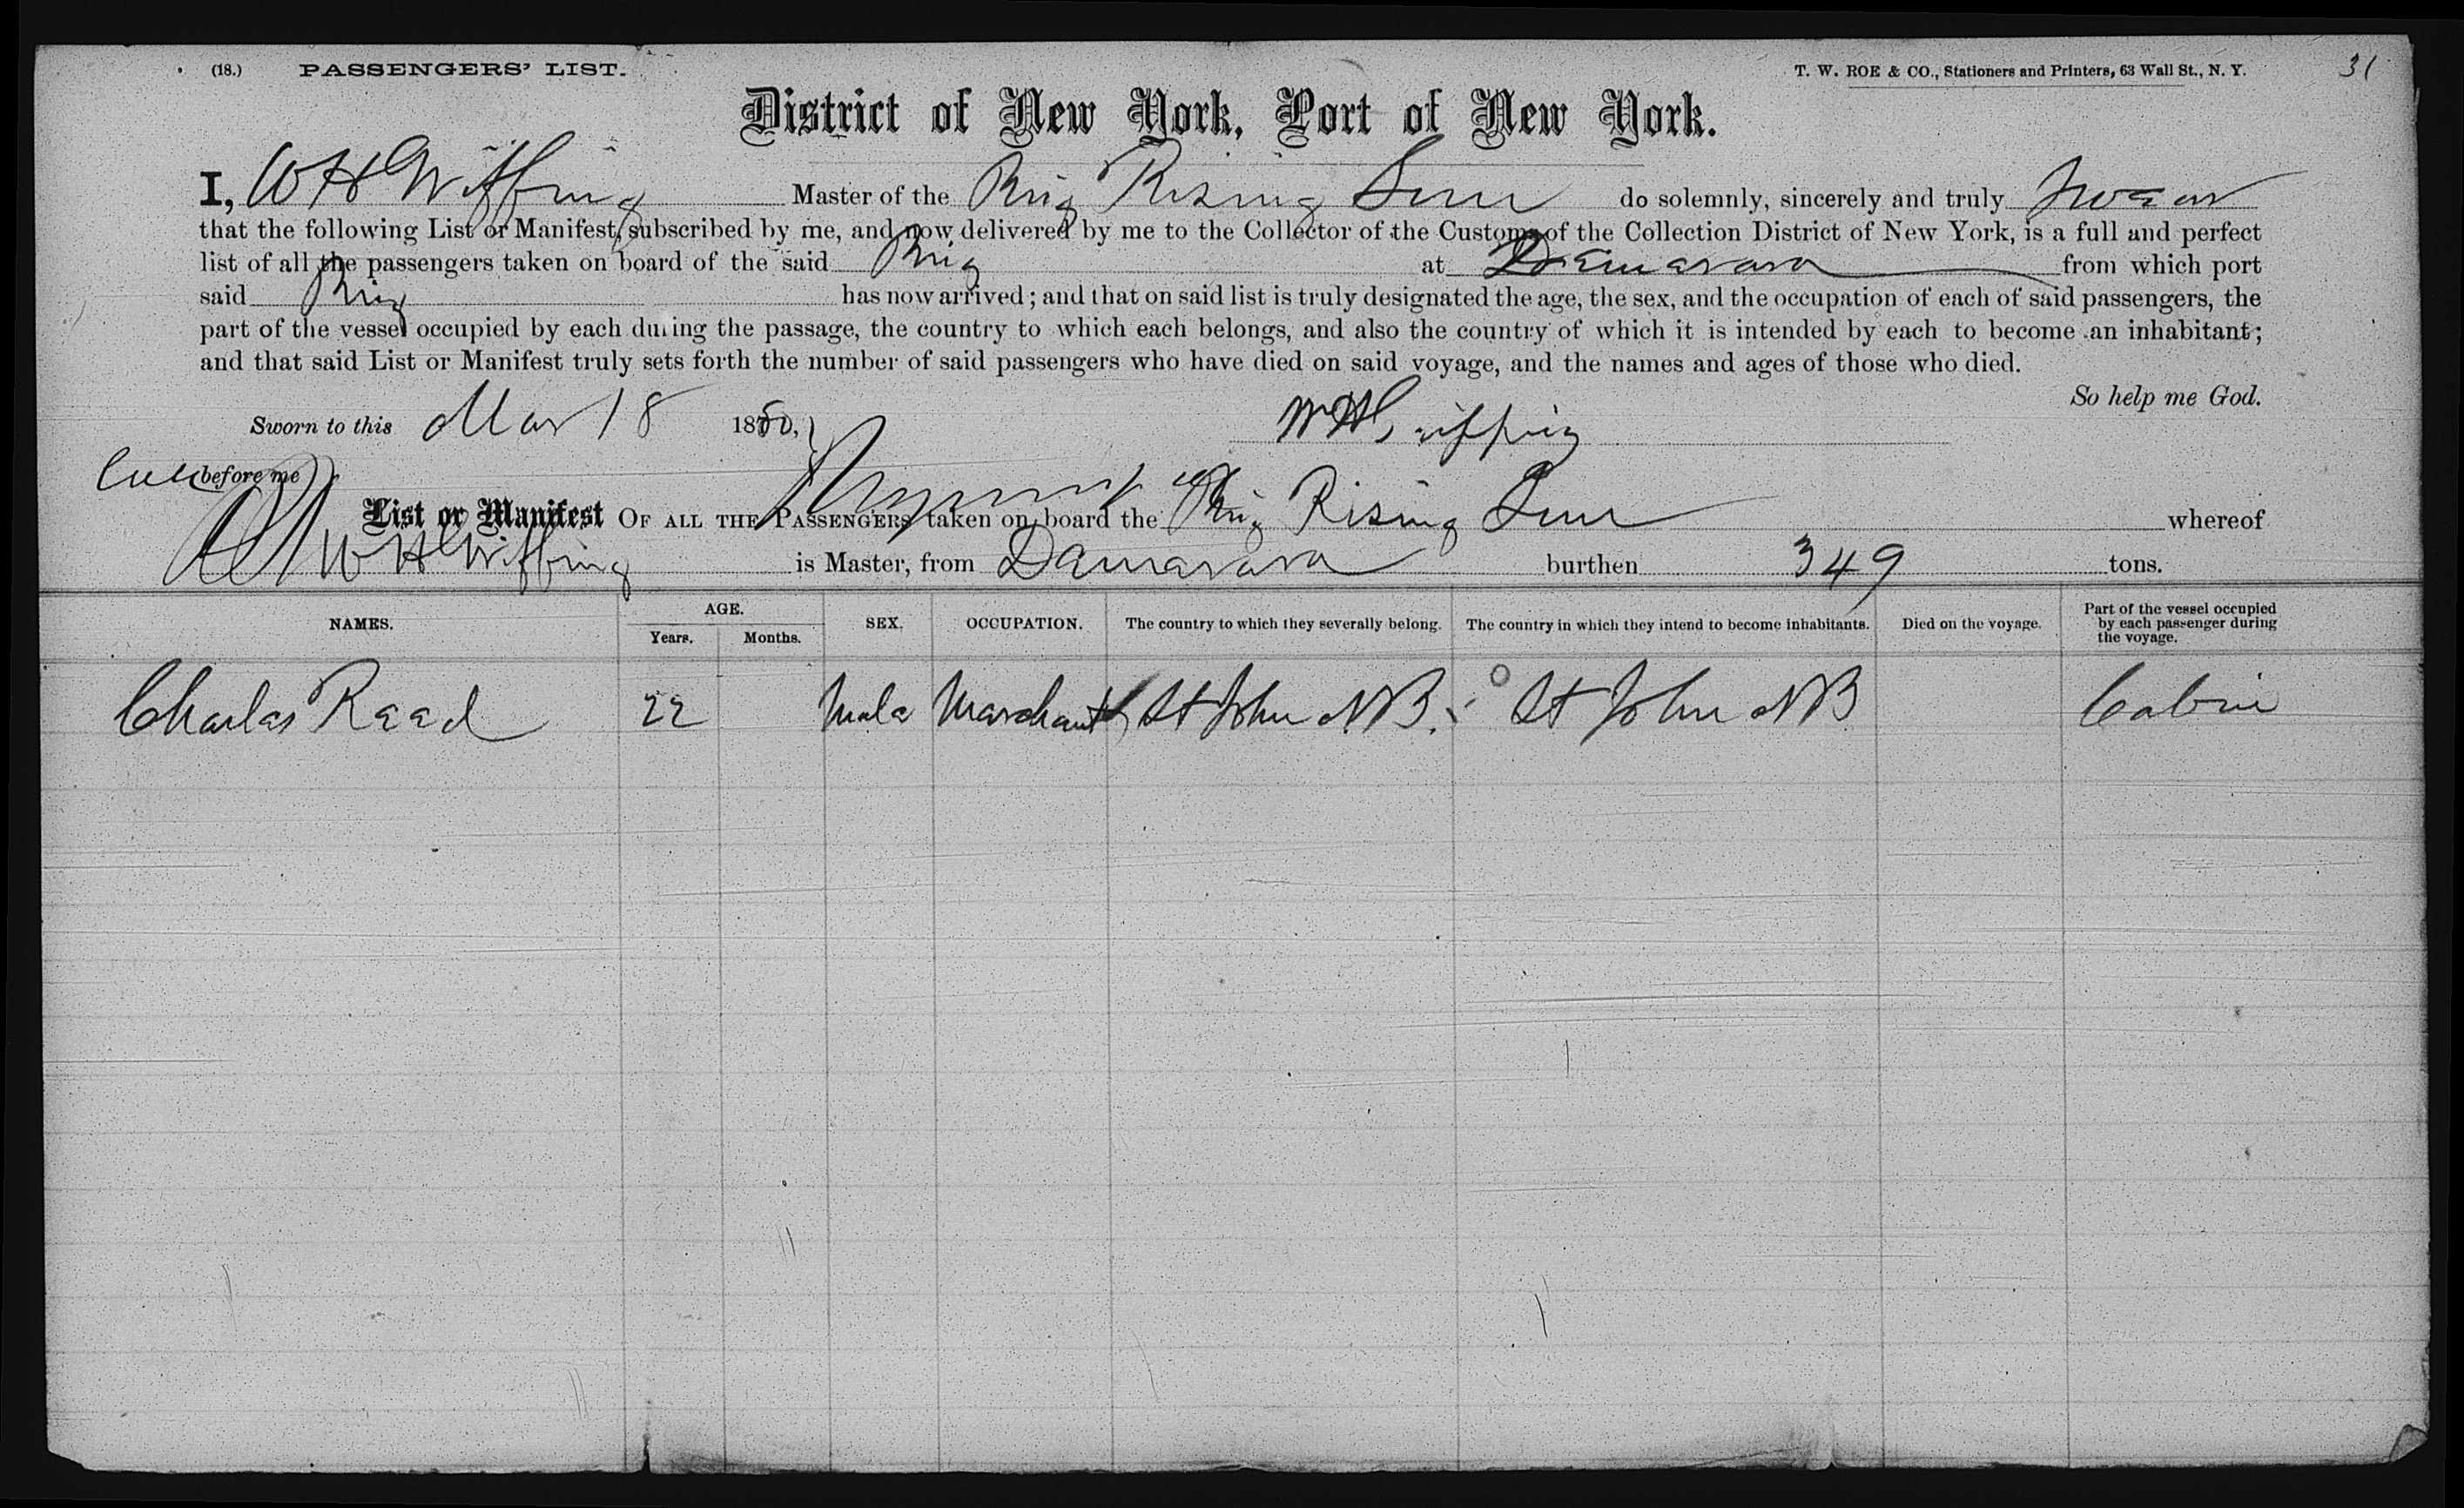 (18.) PASSENGERS' LIST. T. W. ROE & CO., Stationers and Printers, 63 Wall St., N. Y. 31
District of New York, Port of New York.
I, W H Master of the Brig Rising Sun do solemnly, sincerely and truly swear
that the following List or Manifest, subscribed by me, and now delivered by me to the Collector of the Customs of the Collection District of New York, is a full and perfect
list of all the passengers taken on board of the said Brig at Demarara from which port
said Brig has now arrived; and that on said list is truly designated the age, the sex, and the occupation of each of said passengers, the
part of the vessel occupied by each during the passage, the country to which each belongs, and also the country of which it is intended by each to become an inhabitant;
and that said List or Manifest truly sets forth the number of said passengers who have died on said voyage, and the names and ages of those who died.
So help me God.
Sworn to this Mar 18 1880,
before me
List or Manifest OF ALL THE PASSENGERS taken on board the Brig Rising Sun whereof
W H is Master, from Damarara burthen 349 tons.
NAMES. AGE. Years. Months. SEX. OCCUPATION. The country to which they severally belong. The country in which they intend to become inhabitants. Died on the voyage. Part of the vessel occupied by each passenger during the voyage.
Charles Read 22 Male Merchant St John N.B. St John NB Cabin